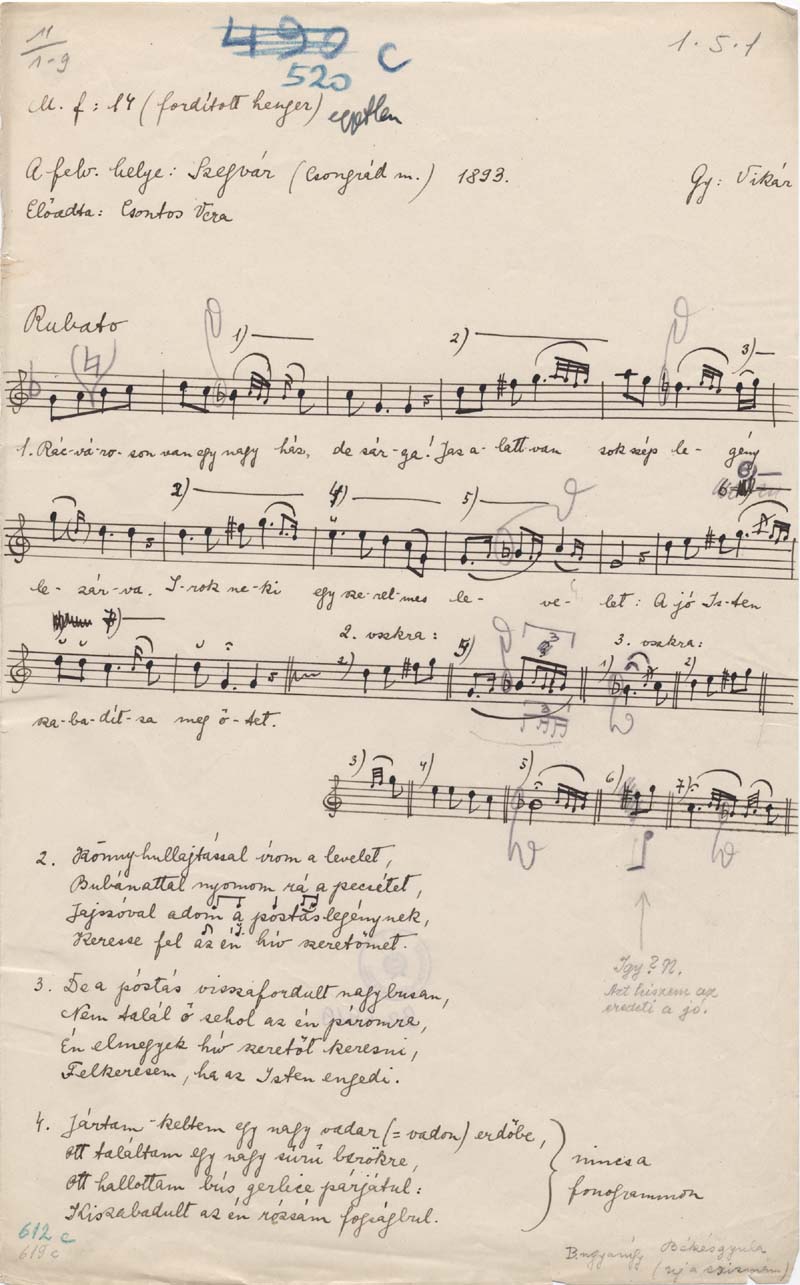 11
1-9
490
520 c
1.5.1
M. f: 14 (fordított henger) egyetlen
A felv. helye: Szegvár (Csongrád m.) 1893. Gy: Vikár
Előadta: Csontos Vera
Rubato
1) 2) 3)
1. Rác-vá-ro-son van egy nagy ház, de sár-ga! Jaz a-latt van sok szép le-gény
2) 4) 5) 6)
le-zár-va. I-rok ne-ki egy sze-rel-mes le-ve-let: A jó Is-ten
7) 2. vszkra: 3. vszkra:
2) 5) 3 1) 2)
sza-ba-dít-sa meg ő-tet.
3) 4) 5) 6) 7)
2. Könny-hullajtással írom a levelet,
Bubánattal nyomom rá a pecsétet,
Jajszóval adom a póstáslegénynek,
Keresse fel az én hív szeretőmet.
Igy? N.
Azt hiszem az
eredeti a jó.
3. De a póstás visszafordult nagybusan,
Nem talál ő sehol az én páromra,
Én elmegyek hív szeretőt keresni,
Felkeresem, ha az Isten engedi.
4. Jártam-keltem egy nagy vadar (= vadon) erdőbe,
Ott találtam egy nagy sűrű berökre,
Ott hallottam bús gerlice párjátul:
Kiszabadult az én rózsám fogságbul.
nincs a
fonogrammon
612 c
619 c
B. ugyanígy Békésgyula